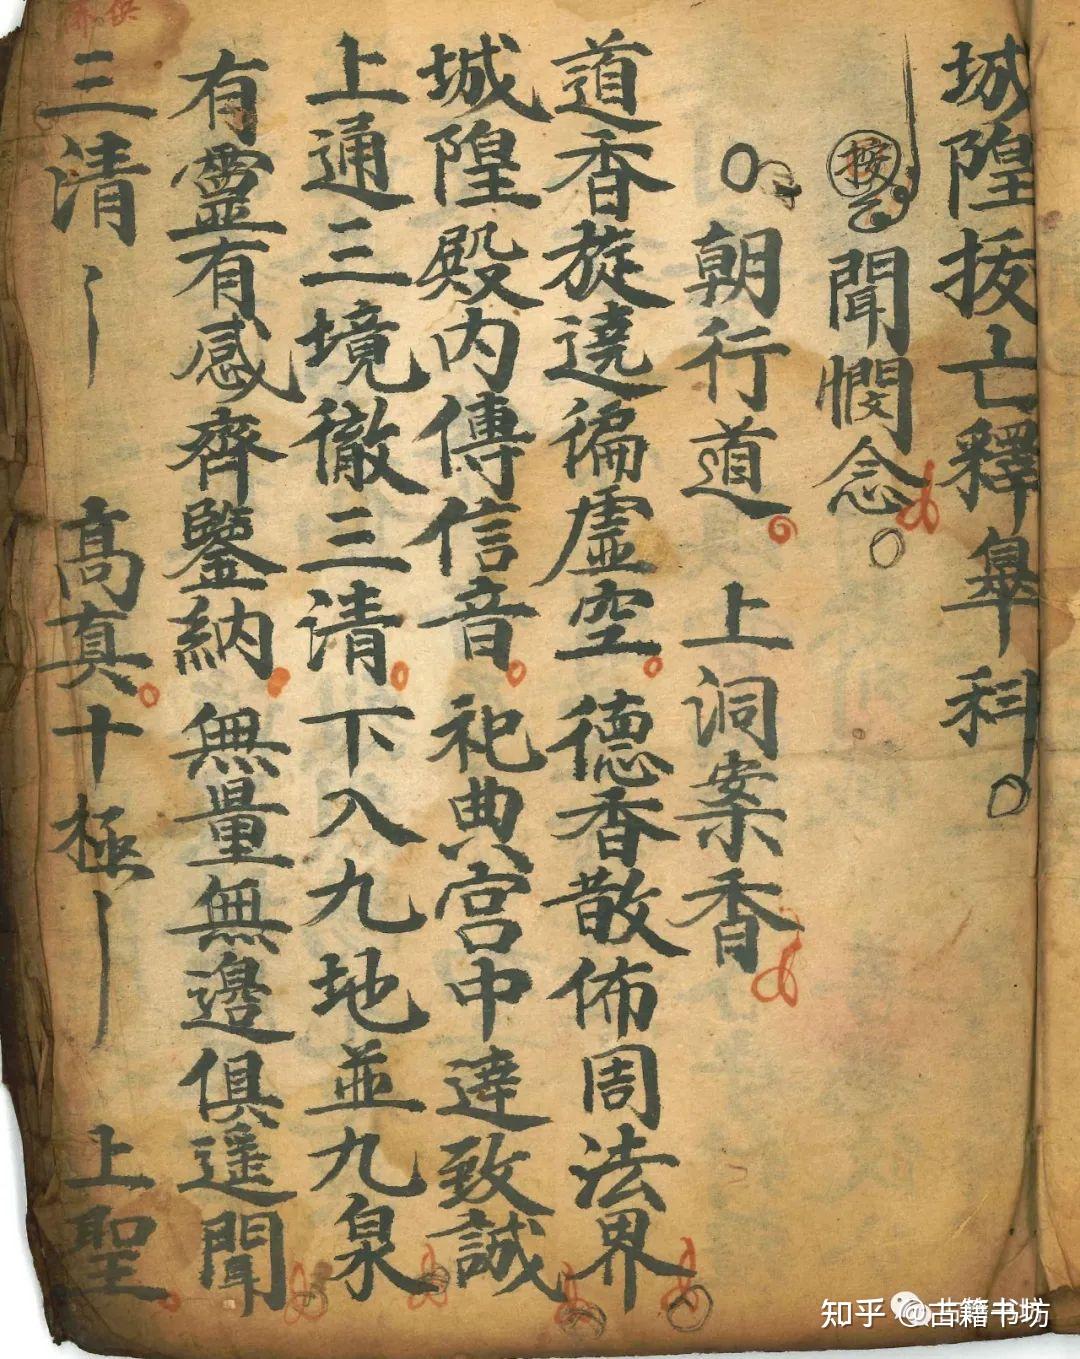 城隍拔亡釋罪科
按乙聞憫念
朝行道 上洞案香
道香旋遶徧虛空德香散佈周法界
城隍殿內傳信音祀典宮中達致誠
上通三境徹三清下入九地並九泉
有靈有感齊鑒納無量無邊俱遥聞
三清 高真十極 上聖
知乎 @古籍书坊